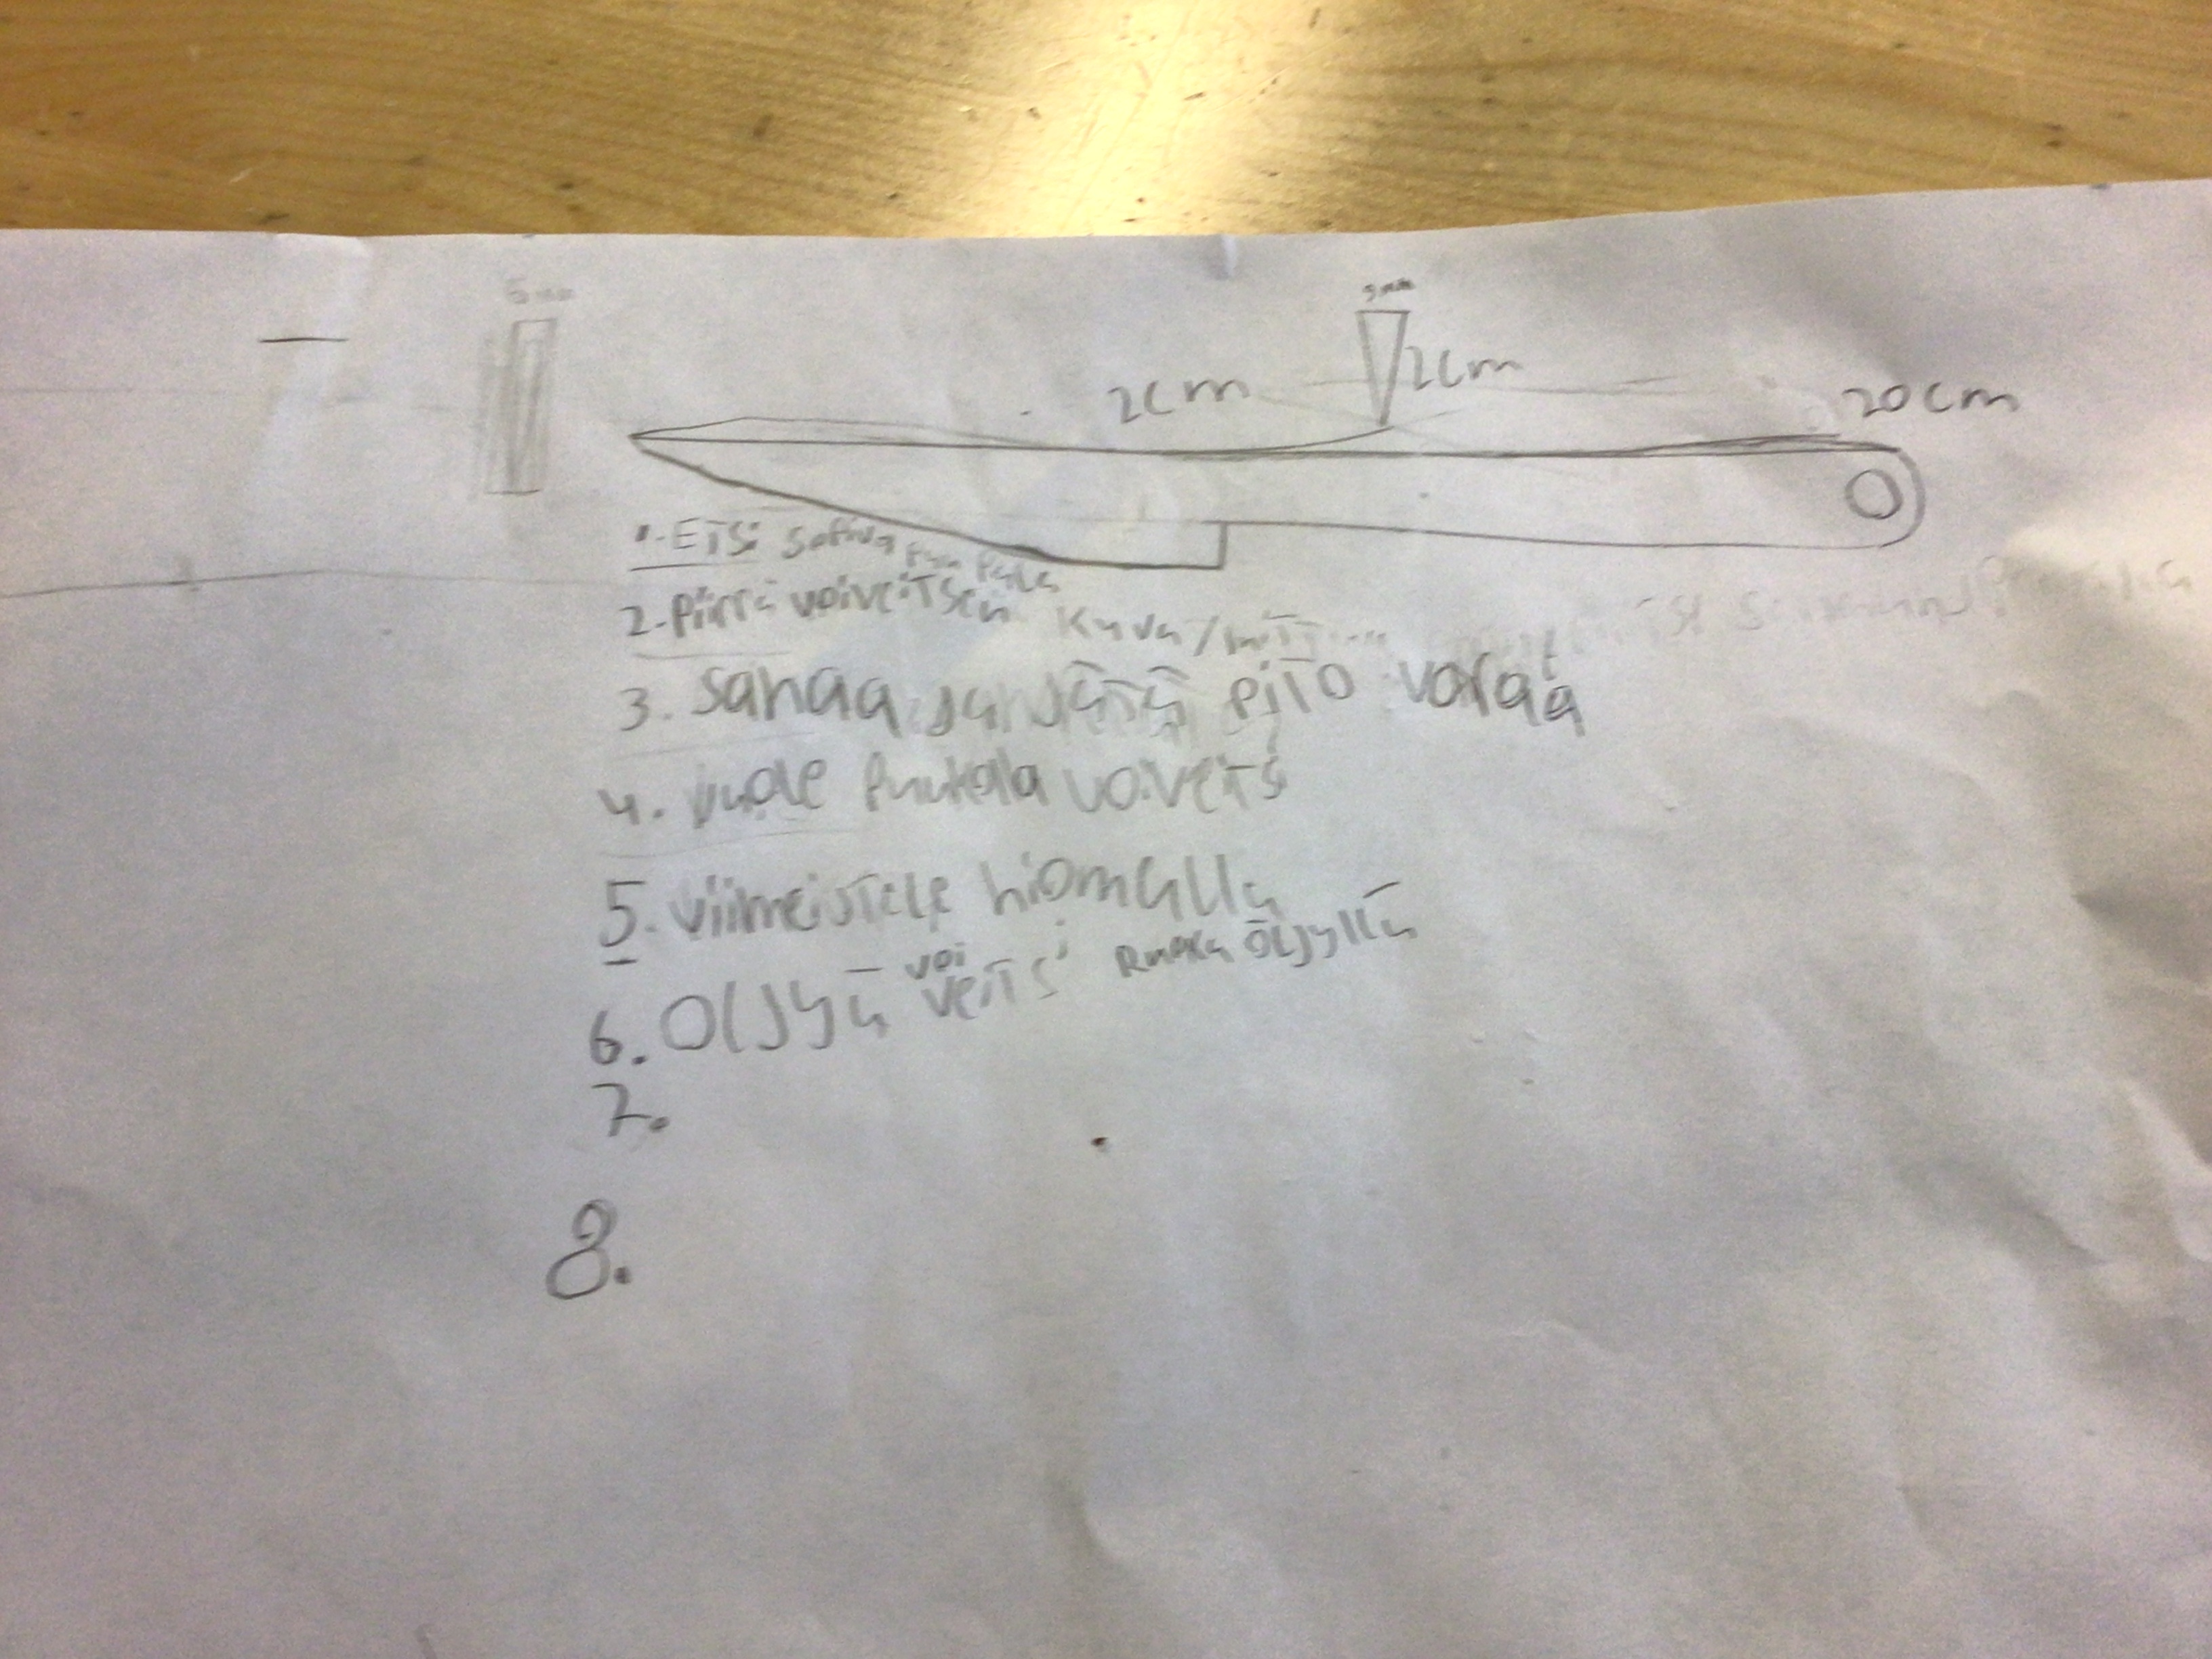 5mm
2cm
2cm
20cm
1. ETSi Sofiva puu Pala
2. Piirrä voiveitsen kuva/
3. Sahaa ja Jätä pito varaa
4. vuole Puukolla voiveits
5. viimeistele hiomalla
6. Oljyä voi veitsi Ruoka öljyllä
7.
8.